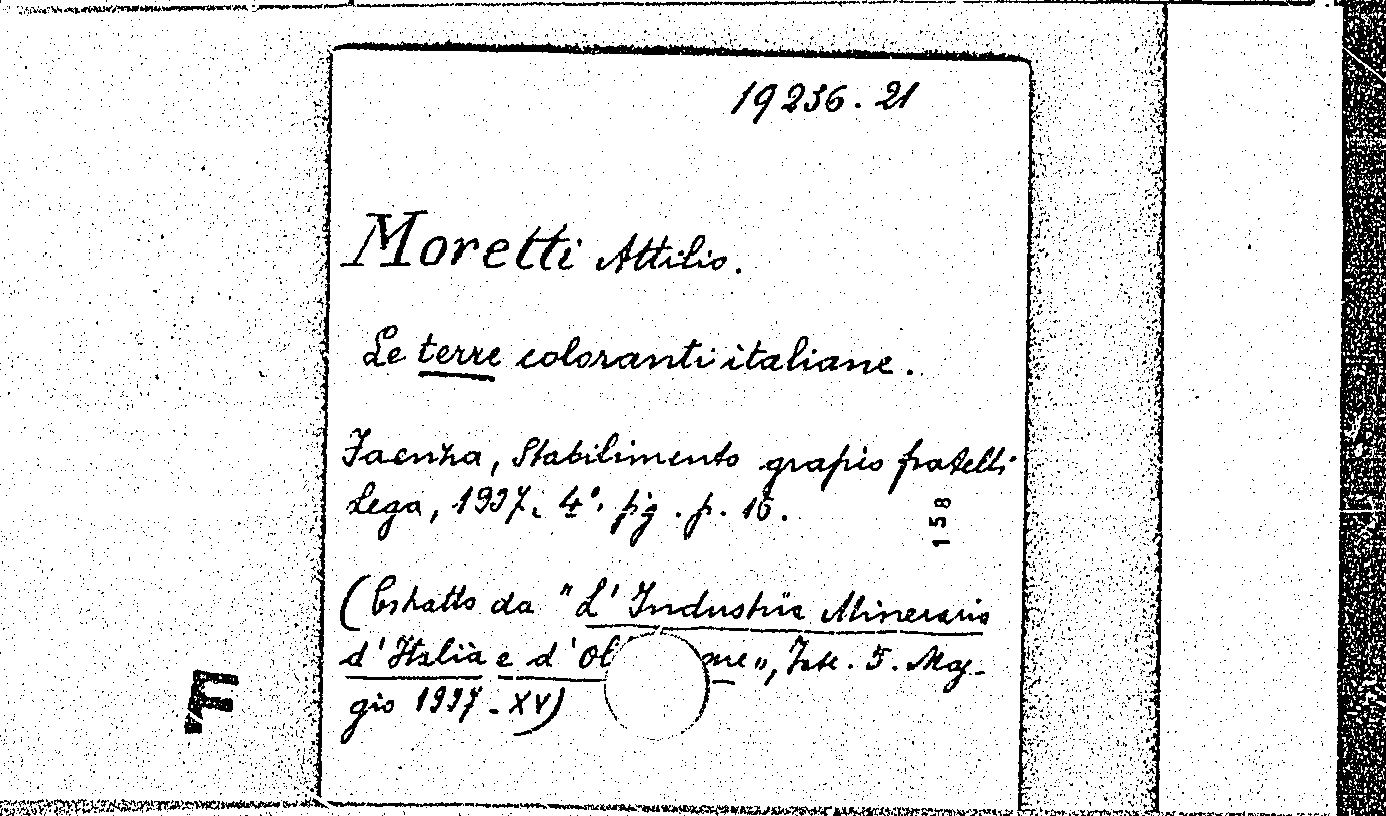 19236.21
Moretti Attilio.
Le terre coloranti italiane.
Faenza, Stabilimento grafico fratelli
Lega, 1937. 4°. fig. p. 16.
158
(Estratto da "L'Industria Mineraria
d'Italia e d'Ol me", Fasc. 5. Mag-
gio 1937-XV)